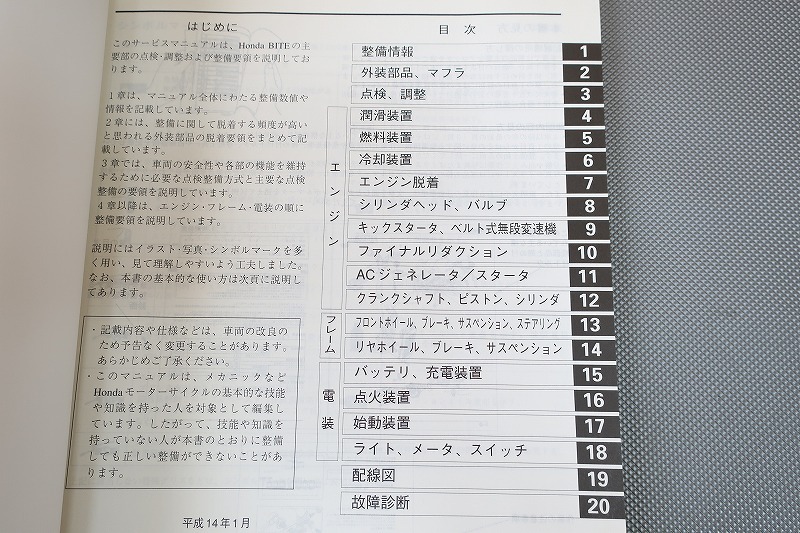 はじめに
このサービスマニュアルは、Honda BITEの主
要部の点検・調整および整備要領を説明してお
ります。
1章は、マニュアル全体にわたる整備数値や
情報を記載しています。
2章には、整備に関して脱着する頻度が高い
と思われる外装部品の脱着要領をまとめて記
載しています。
3章では、車両の安全性や各部の機能を維持
するために必要な点検整備方式と主要な点検
整備の要領を説明しています。
4章以降は、エンジン・フレーム・電装の順に
整備要領を説明しています。
説明にはイラスト・写真・シンボルマークを多
く用い、見て理解しやすいよう工夫しました。
なお、本書の基本的な使い方は次頁に説明し
てあります。
・記載内容や仕様などは、車両の改良の
ため予告なく変更することがあります。
あらかじめご了承ください。
・このマニュアルは、メカニックなど
Hondaモーターサイクルの基本的な技能
や知識を持った人を対象として編集し
ています。したがって、技能や知識を
持っていない人が本書のとおりに整備
しても正しい整備ができないことがあ
ります。
平成14年1月
目 次
整備情報 1
外装部品、マフラ 2
点検、調整 3
エンジン
潤滑装置 4
燃料装置 5
冷却装置 6
エンジン脱着 7
シリンダヘッド、バルブ 8
キックスタータ、ベルト式無段変速機 9
ファイナルリダクション 10
ACジェネレータ／スタータ 11
クランクシャフト、ピストン、シリンダ 12
フレーム
フロントホイール、ブレーキ、サスペンション、ステアリング 13
リヤホイール、ブレーキ、サスペンション 14
電装
バッテリ、充電装置 15
点火装置 16
始動装置 17
ライト、メータ、スイッチ 18
配線図 19
故障診断 20